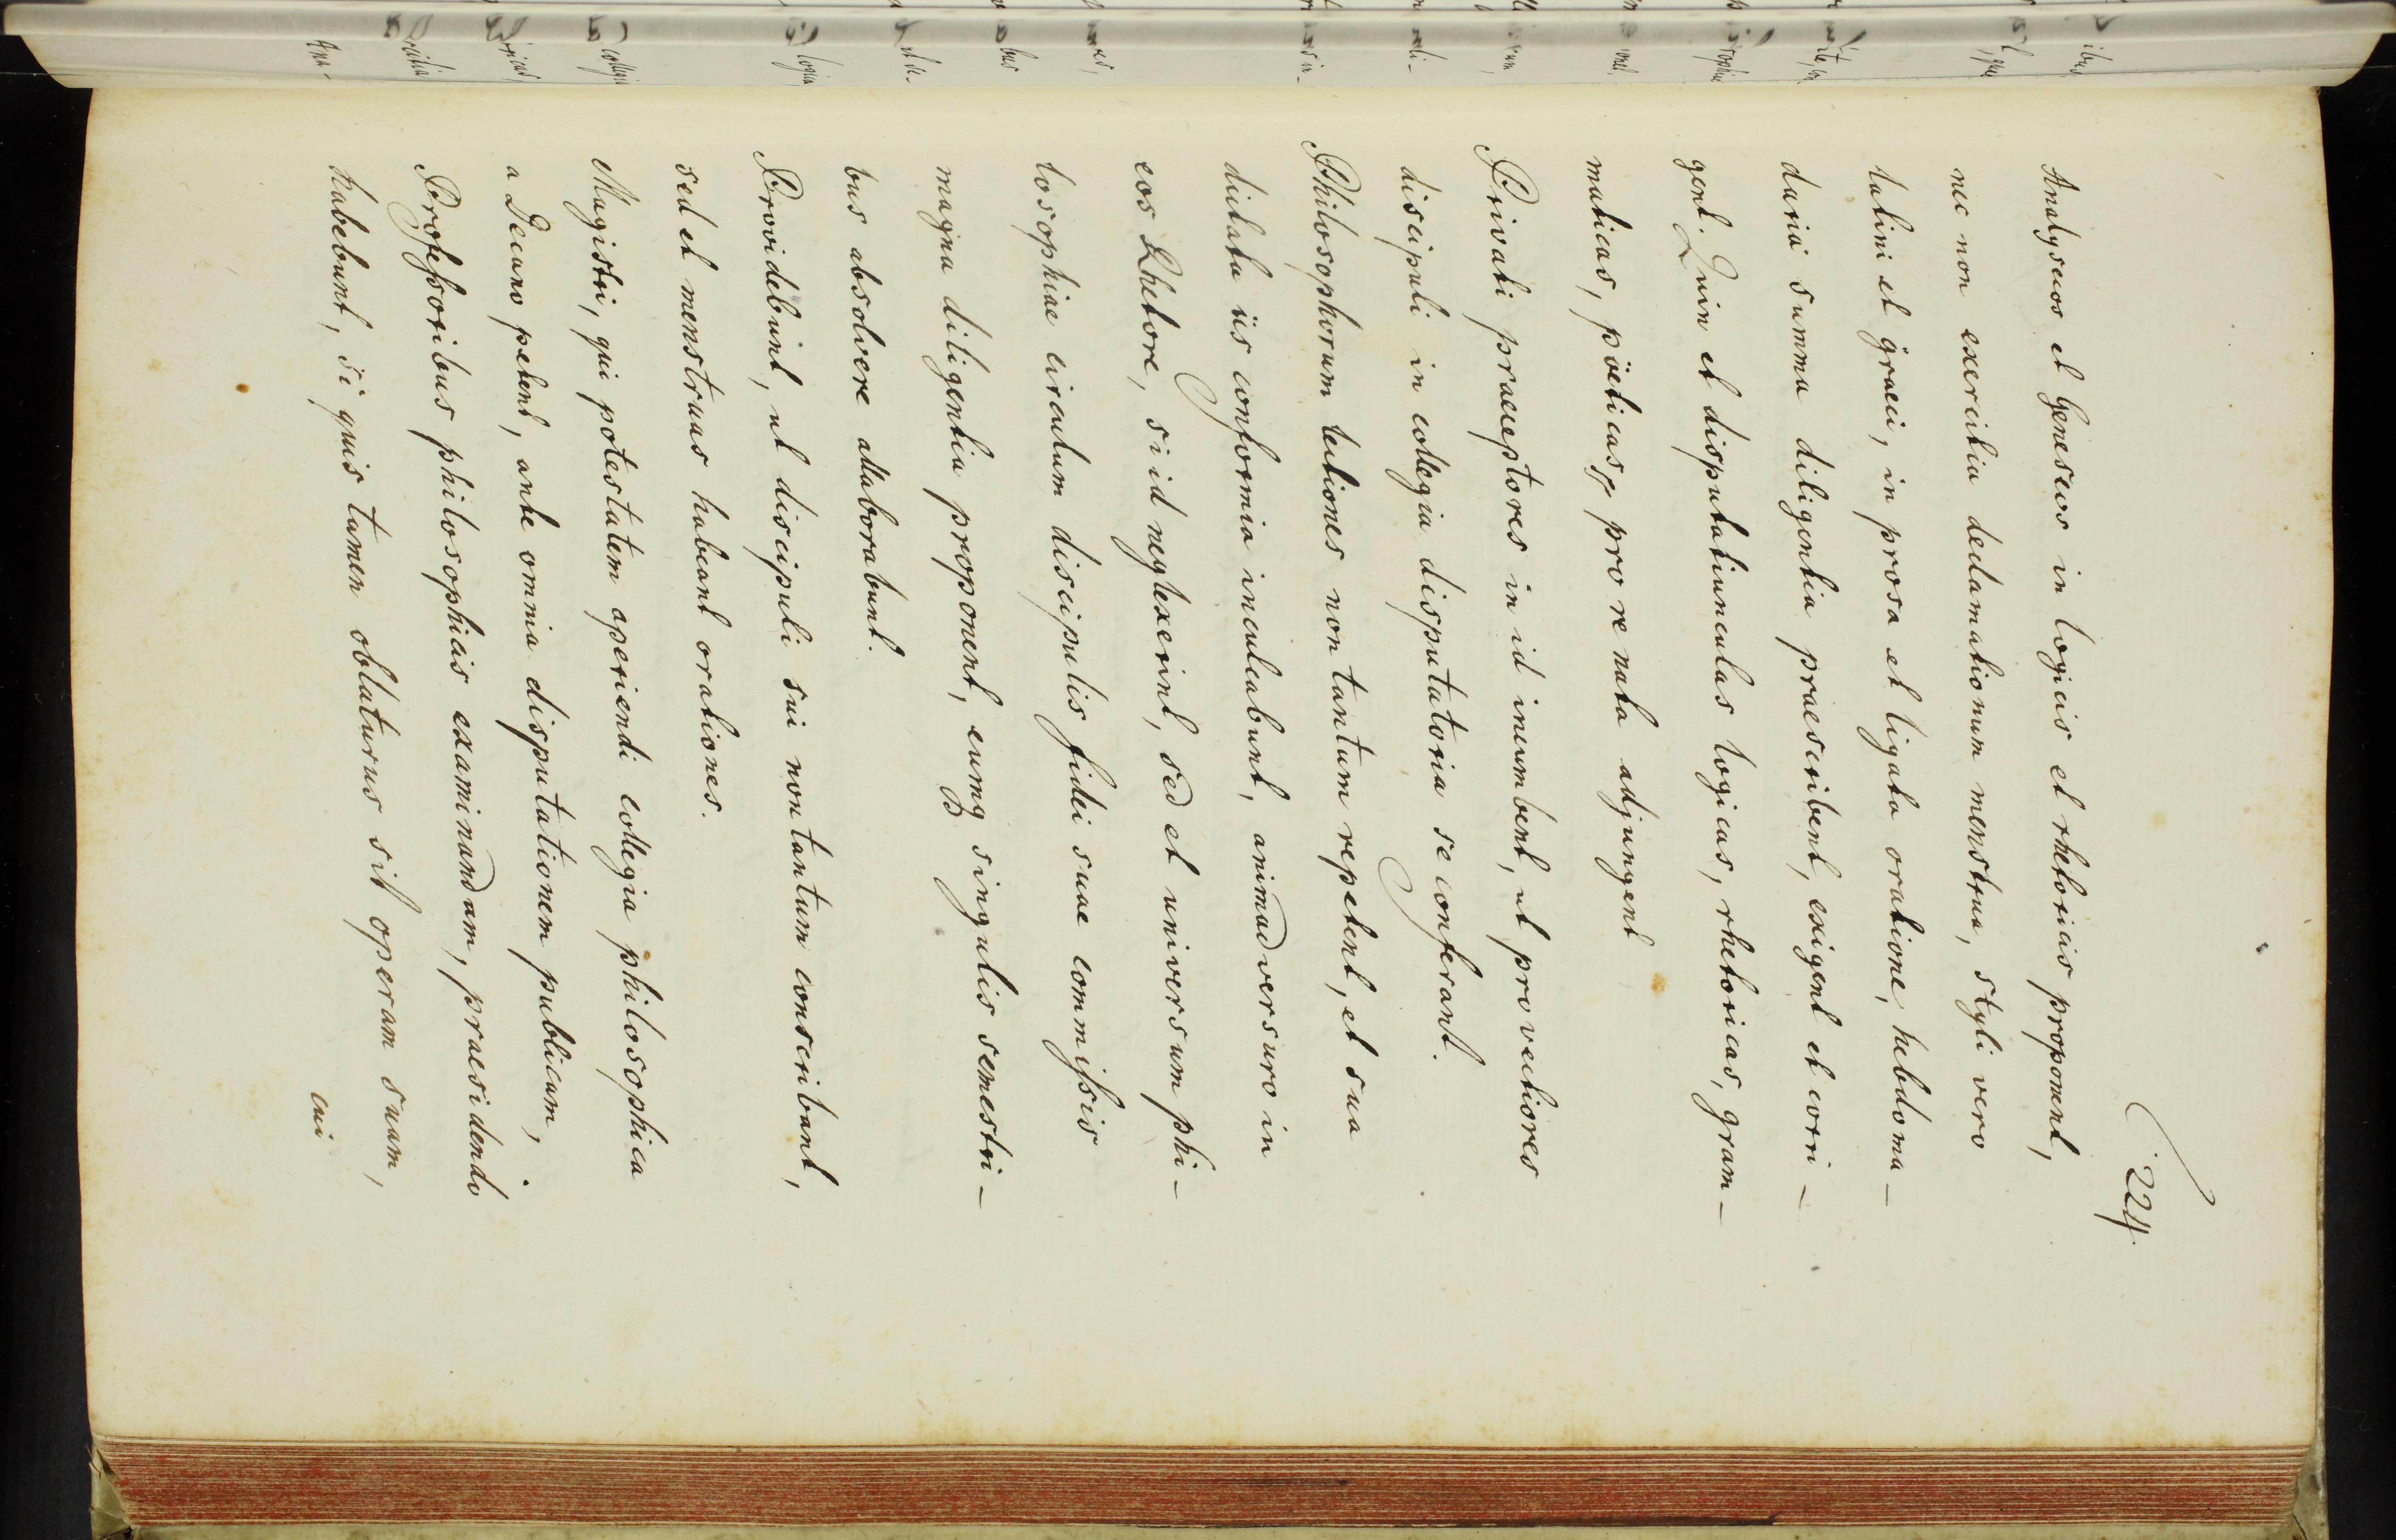 224.
Analyseos et Geneseos in logicis et rhetoricis proponent,
nec non exercitia declamationum menstrua, styli vero
latini et graeci, in prosa et ligata oratione, hebdoma-
daria summa diligentia praescribent, exigent et corri-
gent. Quin et disputatiunculas logicas, rhetoricas, gram-
maticas, pöeticasq pro re nata adjungent
Privati praeceptores in id incumbent, ut provectiores
discipuli in collegia disputatoria se conferant.
Philosophorum lectiones non tantum repetent, et sua
dictata iis conformia inculcabunt, animadversuro in
eos Rhetore, si id neglexerint, sed et universum phi-
losophiae circulum discipulis fidei suae commissis
magna diligentia proponent, eumq singulis semestri-
bus absolvere allaborabunt.
Providebunt, ut discipuli sui non tantum conscribant,
sed et menstruas habeant orationes.
Magistri, qui potestatem aperiendi collegia philosophica
a Decano petent, ante omnia disputationem publicam,
Professoribus philosophicis examinandam, praesidendo
habebunt, si quis tamen oblaturus sit operam suam,
cui